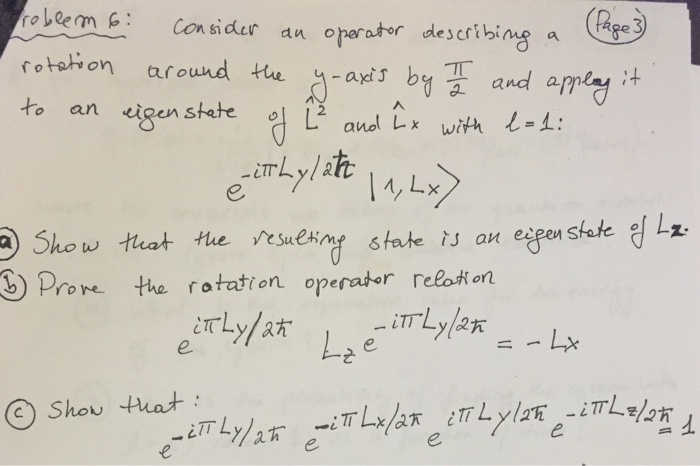 roblem 6: Consider an operator describing a (Page 3)
rotation around the y-axis by π/2 and apply it
to an eigenstate of L̂² and L̂x with l=1:
e^{-iπLy/2ħ} |1, Lx⟩
(a) Show that the resulting state is an eigenstate of Lz.
(b) Prove the rotation operator relation
e^{iπLy/2ħ} Lz e^{-iπLy/2ħ} = -Lx
(c) Show that:
e^{-iπLy/2ħ} e^{-iπLx/2ħ} e^{iπLy/2ħ} e^{-iπLz/2ħ} = 1